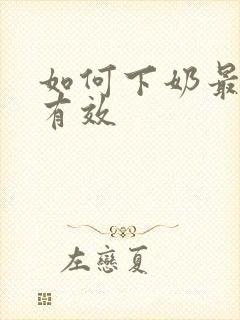 如何下奶最
有效
左恋夏